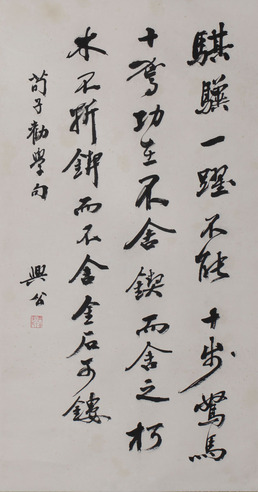 騏驥一躍不能十步駑馬
十駕功在不舍鍥而舍之朽
木不折鍥而不舍金石可鏤
荀子勸學句
興公